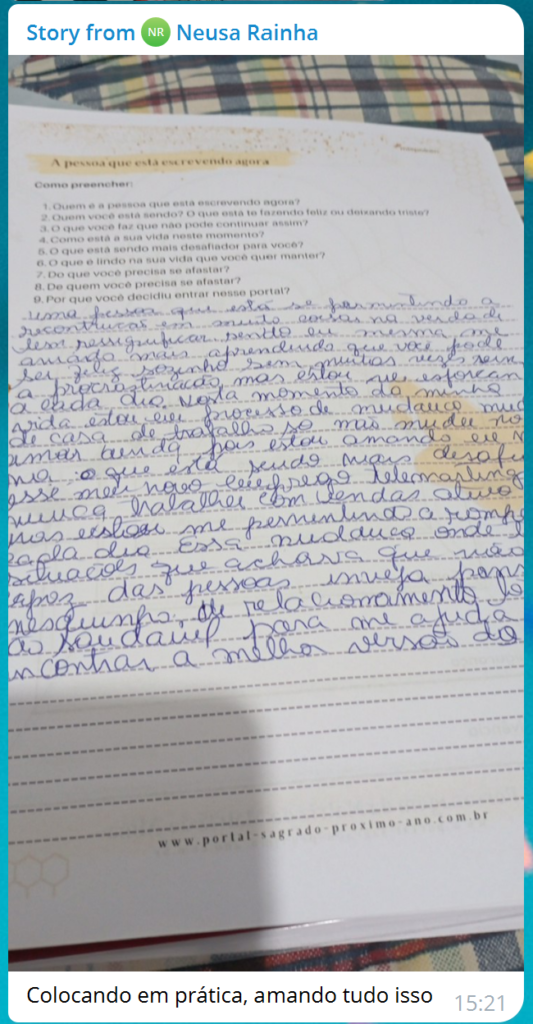 Story from NR Neusa Rainha
A pessoa que está escrevendo agora
Como preencher:
1. Quem é a pessoa que está escrevendo agora?
2. Quem você está sendo? O que está te fazendo feliz ou deixando triste?
3. O que você faz que não pode continuar assim?
4. Como está a sua vida neste momento?
5. O que está sendo mais desafiador para você?
6. O que é lindo na sua vida que você quer manter?
7. Do que você precisa se afastar?
8. De quem você precisa se afastar?
9. Por que você decidiu entrar nesse portal?
uma pessoa que está se permitindo a
em muito coisas na verdade
ressignificar sendo eu mesma me
mais aprendendo que você pode
ser feliz sozinho sem muitas vezes
a procrastinação, mas estou me
a cada dia. Nesta momento da minha
vida estou em processo de mudança
de casa de trabalho só não mudei no
amor ainda pois estou amando eu
o que está sendo mais
esse meu novo telemarting
trabalhei com vendas ativo
mas estou me permitindo a
cada dia essa mudança onde
situações que achava que não
das pessoas inveja
de relacionamento
saudavel para me ajuda
a melhor versão do
www.portal-sagrado-proximo-ano.com.br
Colocando em prática, amando tudo isso
15:21